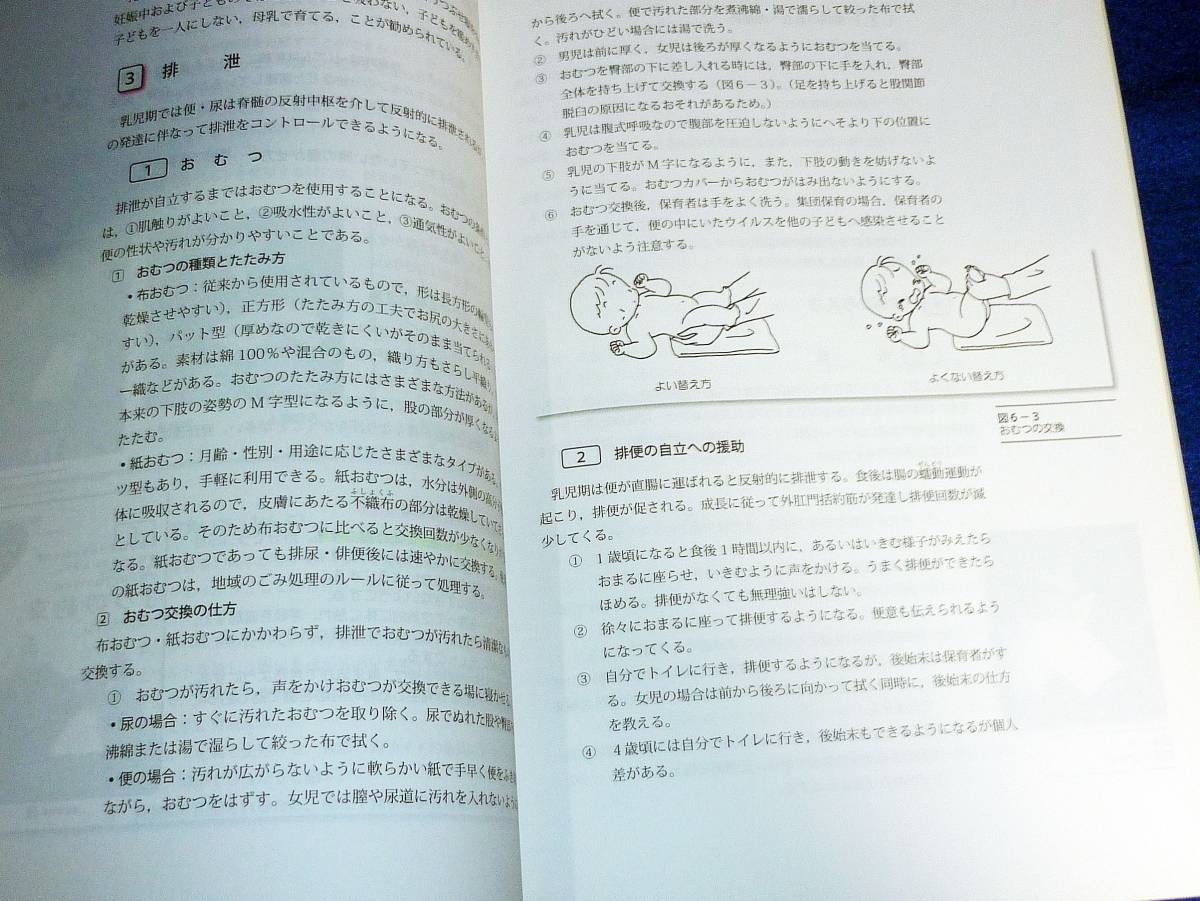 妊娠中および子どもの
子どもを一人にしない，母乳で育てる，ことが勧められている。
3 排　泄
乳児期では便・尿は脊髄の反射中枢を介して反射的に排泄される
の発達に伴なって排泄をコントロールできるようになる。
1 おむつ
排泄が自立するまではおむつを使用することになる。おむつの
は，①肌触りがよいこと，②吸水性がよいこと，③通気性がよいこと，
便の性状や汚れが分かりやすいことである。
1 おむつの種類とたたみ方
・布おむつ：従来から使用されているもので，形は長方形の
乾燥させやすい），正方形（たたみ方の工夫でお尻の大きさに
すい），パット型（厚めなので乾きにくいがそのまま当てられる
がある。素材は綿100％や混合のもの，織り方もさらし平織り
ー織などがある。おむつのたたみ方にはさまざまな方法があるが
本来の下肢の姿勢のM字型になるように，股の部分が厚くなる
たたむ。
・紙おむつ：月齢・性別・用途に応じたさまざまなタイプがある。
ツ型もあり，手軽に利用できる。紙おむつは，水分は外側の高分
体に吸収されるので，皮膚にあたる不織布の部分は乾燥して
としている。そのため布おむつに比べると交換回数が少なくなり
なる。紙おむつであっても排尿・俳便後には速やかに交換する。
の紙おむつは，地域のごみ処理のルールに従って処理する。
2 おむつ交換の仕方
布おむつ・紙おむつにかかわらず，排泄でおむつが汚れたら清潔な
交換する。
① おむつが汚れたら，声をかけおむつが交換できる場に寝かせる。
・尿の場合：すぐに汚れたおむつを取り除く。尿でぬれた股や
沸綿または湯で湿らして絞った布で拭く。
・便の場合：汚れが広がらないように軟らかい紙で手早く便を
ながら，おむつをはずす。女児では膣や尿道に汚れを入れない
から後ろへ拭く。便で汚れた部分を煮沸綿・湯で濡らして絞った布で拭
く。汚れがひどい場合には湯で洗う。
② 男児は前に厚く，女児は後ろが厚くなるようにおむつを当てる。
③ おむつを臀部の下に差し入れる時には，臀部の下に手を入れ，臀部
全体を持ち上げて交換する（図6－3）。（足を持ち上げると股関節
脱臼の原因になるおそれがあるため。）
④ 乳児は腹式呼吸なので腹部を圧迫しないようにへそより下の位置に
おむつを当てる。
⑤ 乳児の下肢がM字になるように，また，下肢の動きを妨げないよ
うに当てる。おむつカバーからおむつがはみ出ないようにする。
⑥ おむつ交換後，保育者は手をよく洗う。集団保育の場合，保育者の
手を通じて，便の中にいたウイルスを他の子どもへ感染させること
がないよう注意する。
よい替え方
よくない替え方
図6－3
おむつの交換
2 排便の自立への援助
乳児期は便が直腸に運ばれると反射的に排泄する。食後は腸の蠕動運動が
起こり，排便が促される。成長に従って外肛門括約筋が発達し排便回数が減
少してくる。
① 1歳頃になると食後1時間以内に，あるいはいきむ様子がみえたら
おまるに座らせ，いきむように声をかける。うまく排便ができたら
ほめる。排便がなくても無理強いはしない。
② 徐々におまるに座って排便するようになる。便意も伝えられるよう
になってくる。
③ 自分でトイレに行き，排便するようになるが，後始末は保育者がす
る。女児の場合は前から後ろに向かって拭く同時に，後始末の仕方
を教える。
④ 4歳頃には自分でトイレに行き，後始末もできるようになるが個人
差がある。